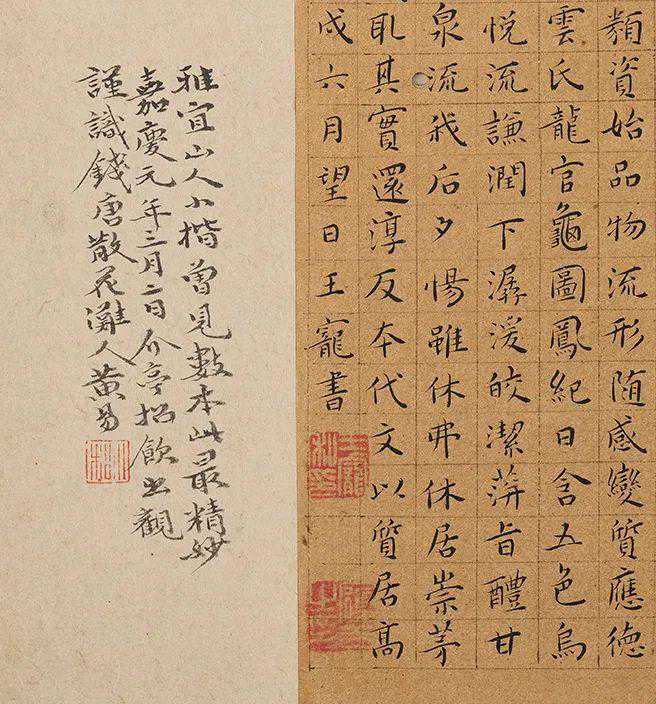 類資始品物流形随感變質應德
雲氏龍官龜圖鳳紀日含五色烏
悦流謙潤下潺湲皎潔蓱旨醴甘
泉流我后夕惕雖休弗休居崇茅
耴其實還淳反本代文以質居高
戍六月望日王寵書
雅宜山人小楷曾見數本此最精妙
嘉慶元年三月二日介亭招飲出觀
謹識錢唐散花灘人黃易